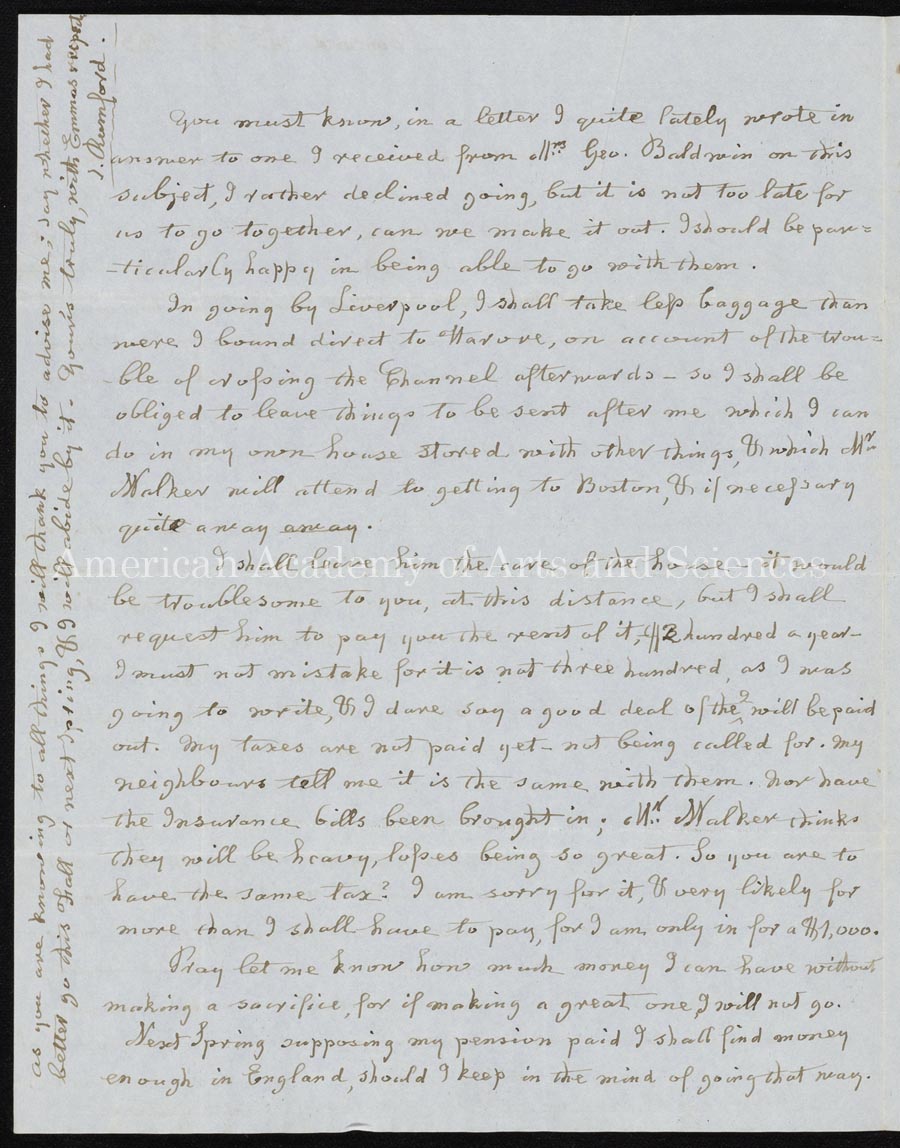 You must know, in a letter I quite lately wrote in
answer to one I received from Mrs Geo. Baldwin on this
subject, I rather declined going, but it is not too late for
us to go together, can we make it out. I should be par=
-ticularly happy in being able to go with them.
In going by Liverpool, I shall take less baggage than
were I bound direct to Havre, on account of the trou=
-ble of crossing the Channel afterwards - so I shall be
obliged to leave things to be sent after me which I can
do in my own house stored with other things, & which Mr
Walker will attend to getting to Boston, & if necessary
quite away away.
I shall leave him the care of the house - it would
be troublesome to you, at this distance, but I shall
request him to pay you the rent of it, - $2 hundred a year -
I must not mistake for it is not three hundred, as I was
going to write, & I dare say a good deal of the 2 will be paid
out. My taxes are not paid yet - not being called for. My
neighbours tell me it is the same with them. Nor have
the Insurance bills been brought in; Mr. Walker thinks
they will be heavy, losses being so great. So you are to
have the same tax? I am sorry for it, & very likely for
more than I shall have to pay, for I am only in for a $1,000.
Pray let me know how much money I can have without
making a sacrifice, for if making a great one, I will not go.
Next Spring supposing my pension paid I shall find money
enough in England, should I keep in the mind of going that way.
as you are knowing to all things I will thank you to advise me; say whether I had
better go this Fall or next Spring, & I will abide by it - Yours truly, with Emmas respects
S. Rumford.
American Academy of Arts and Sciences